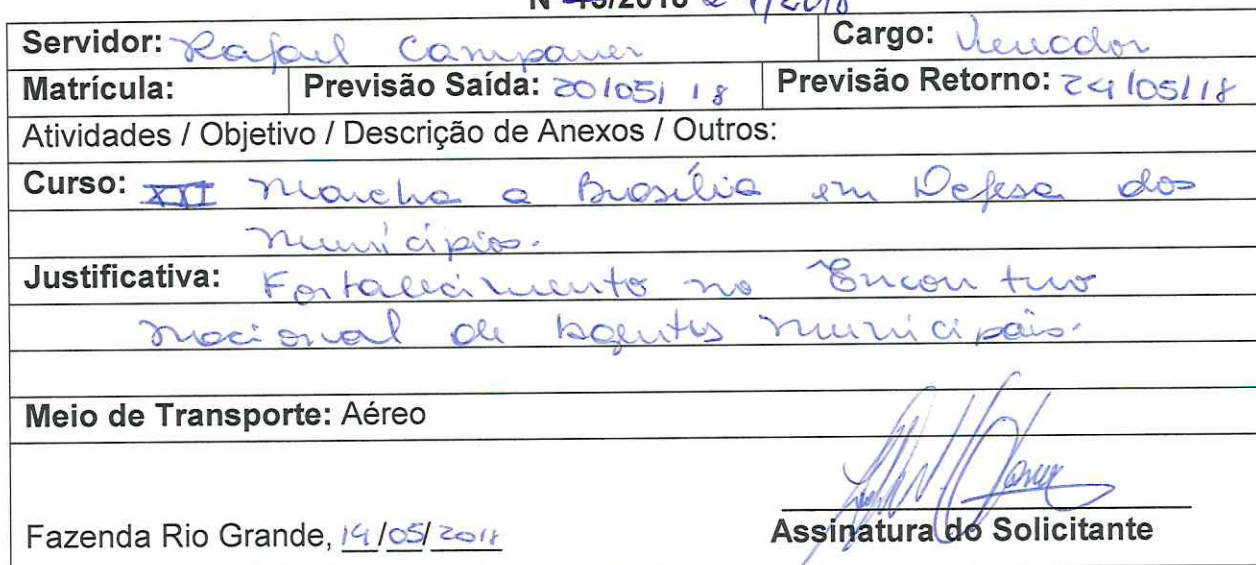 Servidor: Rafael Campaner Cargo: Vereador
Matrícula: Previsão Saída: 20/05/18 Previsão Retorno: 24/05/18
Atividades / Objetivo / Descrição de Anexos / Outros:
Curso: XXI Marcha a Brasília em Defesa dos
Municípios.
Justificativa: Fortalecimento no Encontro
Nacional de Agentes Municipais.
Meio de Transporte: Aéreo
Fazenda Rio Grande, 14/05/2018
Assinatura do Solicitante